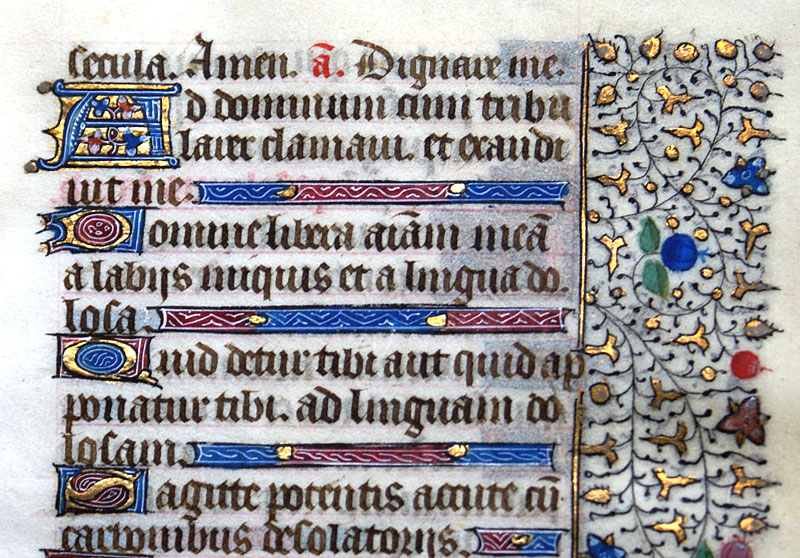 secula. Amen. a̅. Dignare me.
Ad dominum cum tribu
larer clamaui. et exaudi
uit me.
Domine libera aīam meā
a labijs iniquis et a lingua do.
losa.
Quid detur tibi aut quid ap
ponatur tibi. ad linguam do
losam.
Sagitte potentis acute cū
carbonibus desolatorijs.